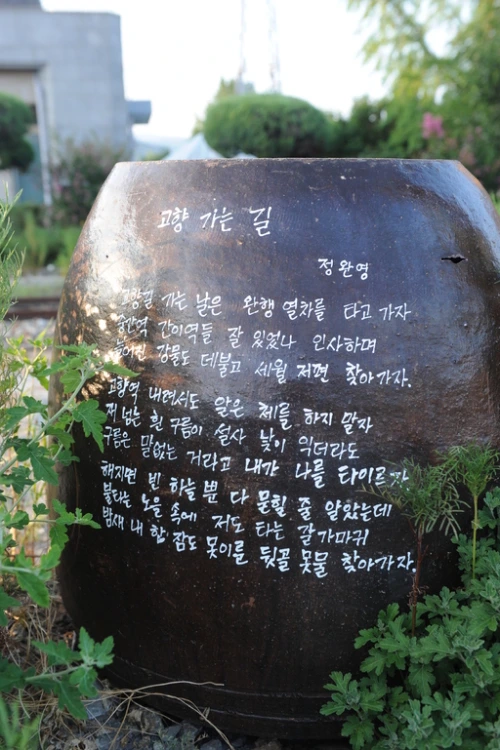 고향 가는 길
정완영
고향길 가는 날은 완행 열차를 타고 가자
중간역 간이역들 잘 있었나 인사하며
늘어진 강물도 데불고 세월 저편 찾아가자.
고향역 내려서도 알은 체를 하지 말자
재 넘는 흰 구름이 설사 낯이 익더라도
구름은 말없는 거라고 내가 나를 타이르자
해지면 빈 하늘 뿐 다 묻힐 줄 알았는데
불타는 노을 속에 저도 타는 갈가마귀
밤새 내 한 잠도 못이룰 뒷골 못물 찾아가자.